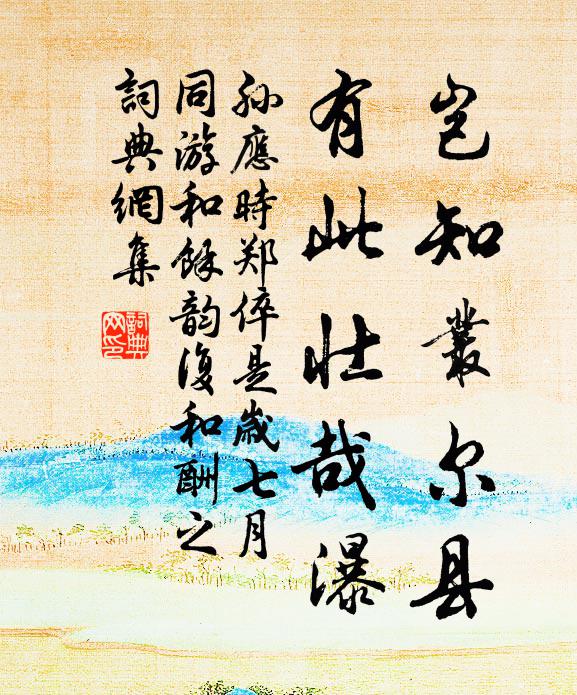 岂知叢尔县
有此壮哉瀑
孙應時郑倅是歲七月
同游和餘韵復和酬之
詞典網集
詞典
网印